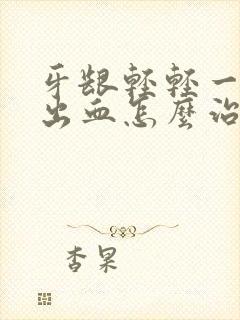 牙龈轻轻一
出血怎麽治
杏果